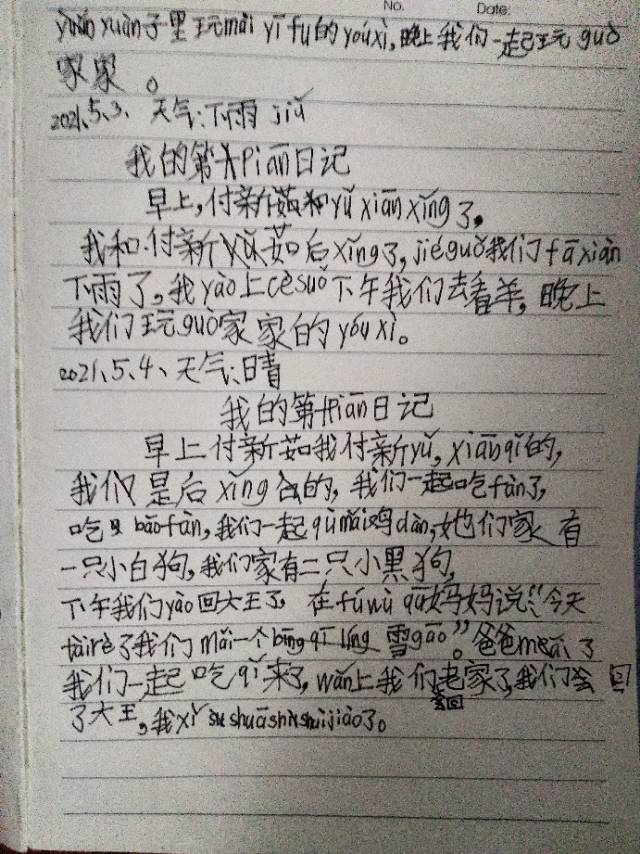 No. Date:
yuàn xuàn子里玩mǎi yī fu的yóuxì,晚上我们一起玩guò
家家。
2021、5、3、天气:下雨 jiǔ
我的第六Piān日记
早上,付新茹和yǔ xiān xǐng了。
我和付新yǔ茹后xǐng了,jiéguǒ我们fā xiàn
下雨了。我yào上cèsuǒ下午我们去看羊,晚上
我们玩guò家家的yóu xì。
2021、5、4、天气:晴
我的第七Piān日记
早上付新茹我付新yǔ,xiān qǐ的,
我们是后xǐng的,我们一起吃fàn了,
吃bǎo fàn,我们一起qù mǎi鸡dàn,她们家有
一只小白狗,我们家有二只小黑狗,
下午我们yào回大王了,在fú wù qū妈妈说:“今天
tài rè了我们mǎi一个bīng qī líng雪gāo”。爸爸mǎi了
我们一起吃qǐ来了,wǎn上我们去回老家了,我们回
了大王,我xǐ shuā shuì jiào了。